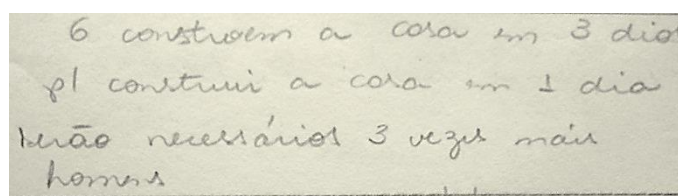 6 constroem a casa em 3 dias
p/ construir a casa em 1 dia
serão necessários 3 vezes mais
homens